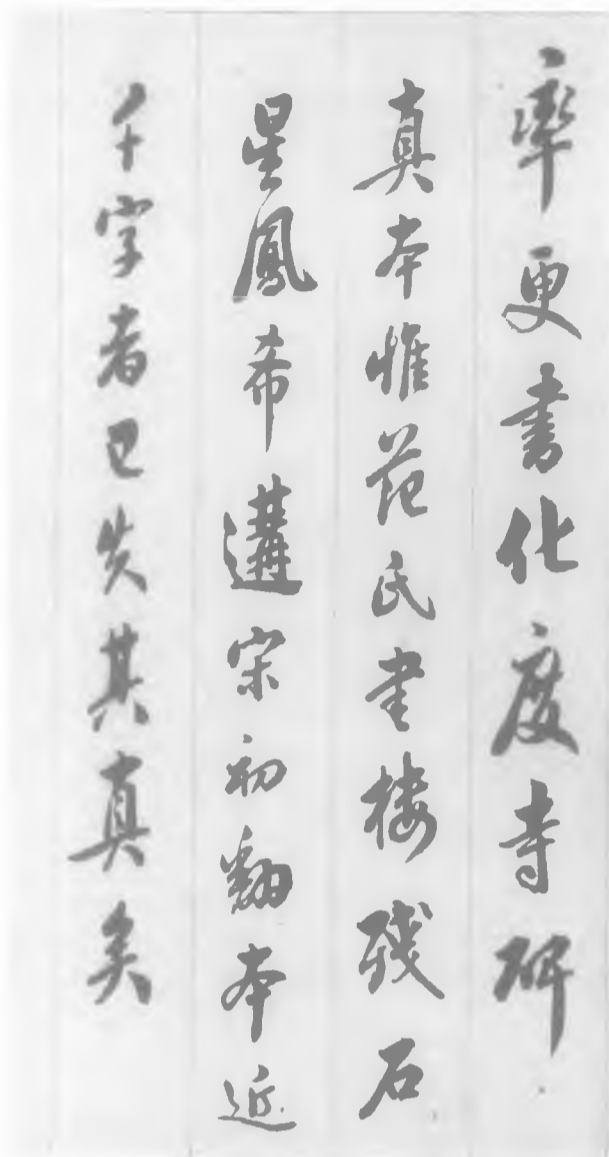 率更书化度寺碑
真本惟范氏書楼残石
星鳳希遘宋初翻本近
千字者已失其真矣